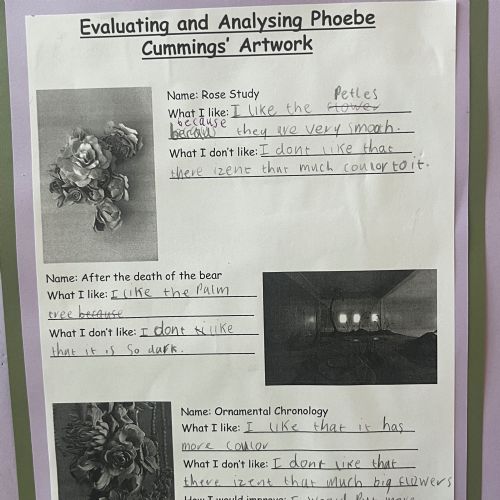 Evaluating and Analysing Phoebe
Cummings' Artwork
Name: Rose Study
Petles
What I like: I like the flower
because
becaus they are very smooth.
What I don't like: I dont like that
there izent that much coulor to it.
Name: After the death of the bear
What I like: I like the Palm
tree because
What I don't like: I dont like
that it is so dark.
Name: Ornamental Chronology
What I like: I like that it has
more coulor
What I don't like: I dont like that
there izent that much big flowers
How I would improve: I would Put more